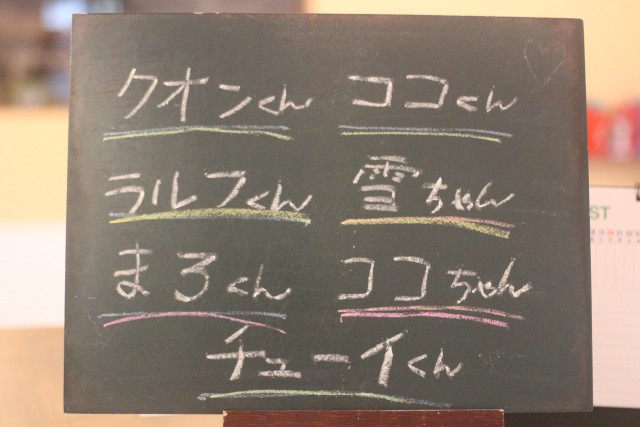 クオンくん ココくん
ラルフくん 雪ちゃん
まろくん ココちゃん
チューイくん
ST